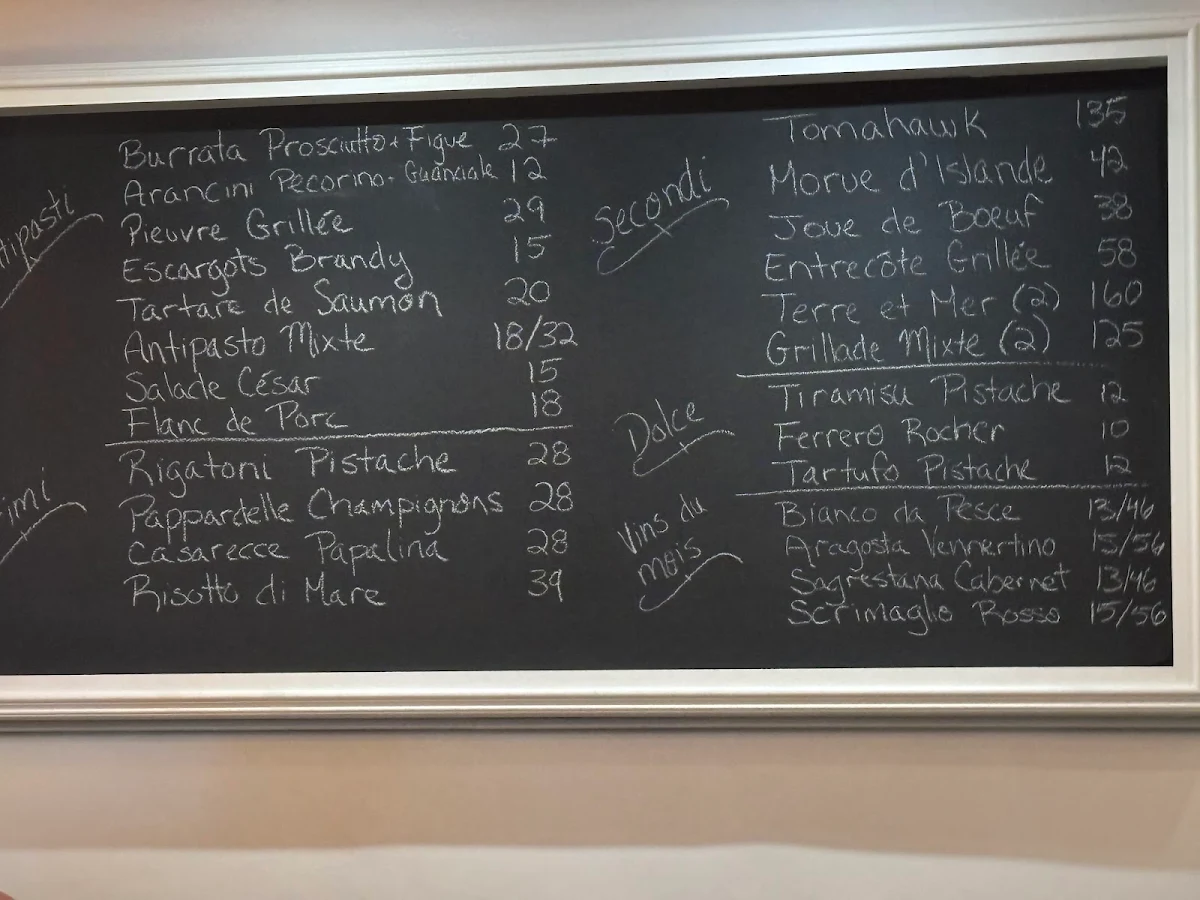 tipasti
Burrata Prosciutto + Figue 27
Arancini Pecorino - Guanciale 12
Pieuvre Grillée 29
Escargots Brandy 15
Tartare de Saumon 20
Antipasto Mixte 18/32
Salade César 15
Flanc de Porc 18
imi
Rigatoni Pistache 28
Pappardelle Champignons 28
Casarecce Papalina 28
Risotto di Mare 39
Secondi
Tomahawk 135
Morue d'Islande 42
Joue de Boeuf 38
Entrecôte Grillée 58
Terre et Mer (2) 160
Grillade Mixte (2) 125
Dolce
Tiramisu Pistache 12
Ferrero Rocher 10
Tartufo Pistache 12
Vins du
mois
Bianco da Pesce 13/46
Aragosta Vennertino 15/56
Sagrestana Cabernet 13/46
Scrimaglio Rosso 15/56